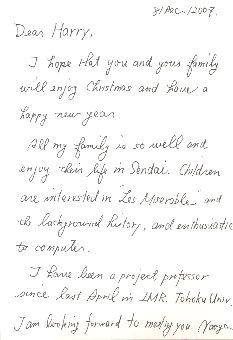 8/Dec./2009.
Dear Harry,
I hope that you and your family
will enjoy Christmas and have a
happy new year.
All my family is so well and
enjoy their life in Sendai. Children
are interested in "Les Miserable" and
its background history, and enthusiastic
to computer.
I have been a project professor
since last April in IMR. Tohoku Univ.
I am looking forward to meeting you.